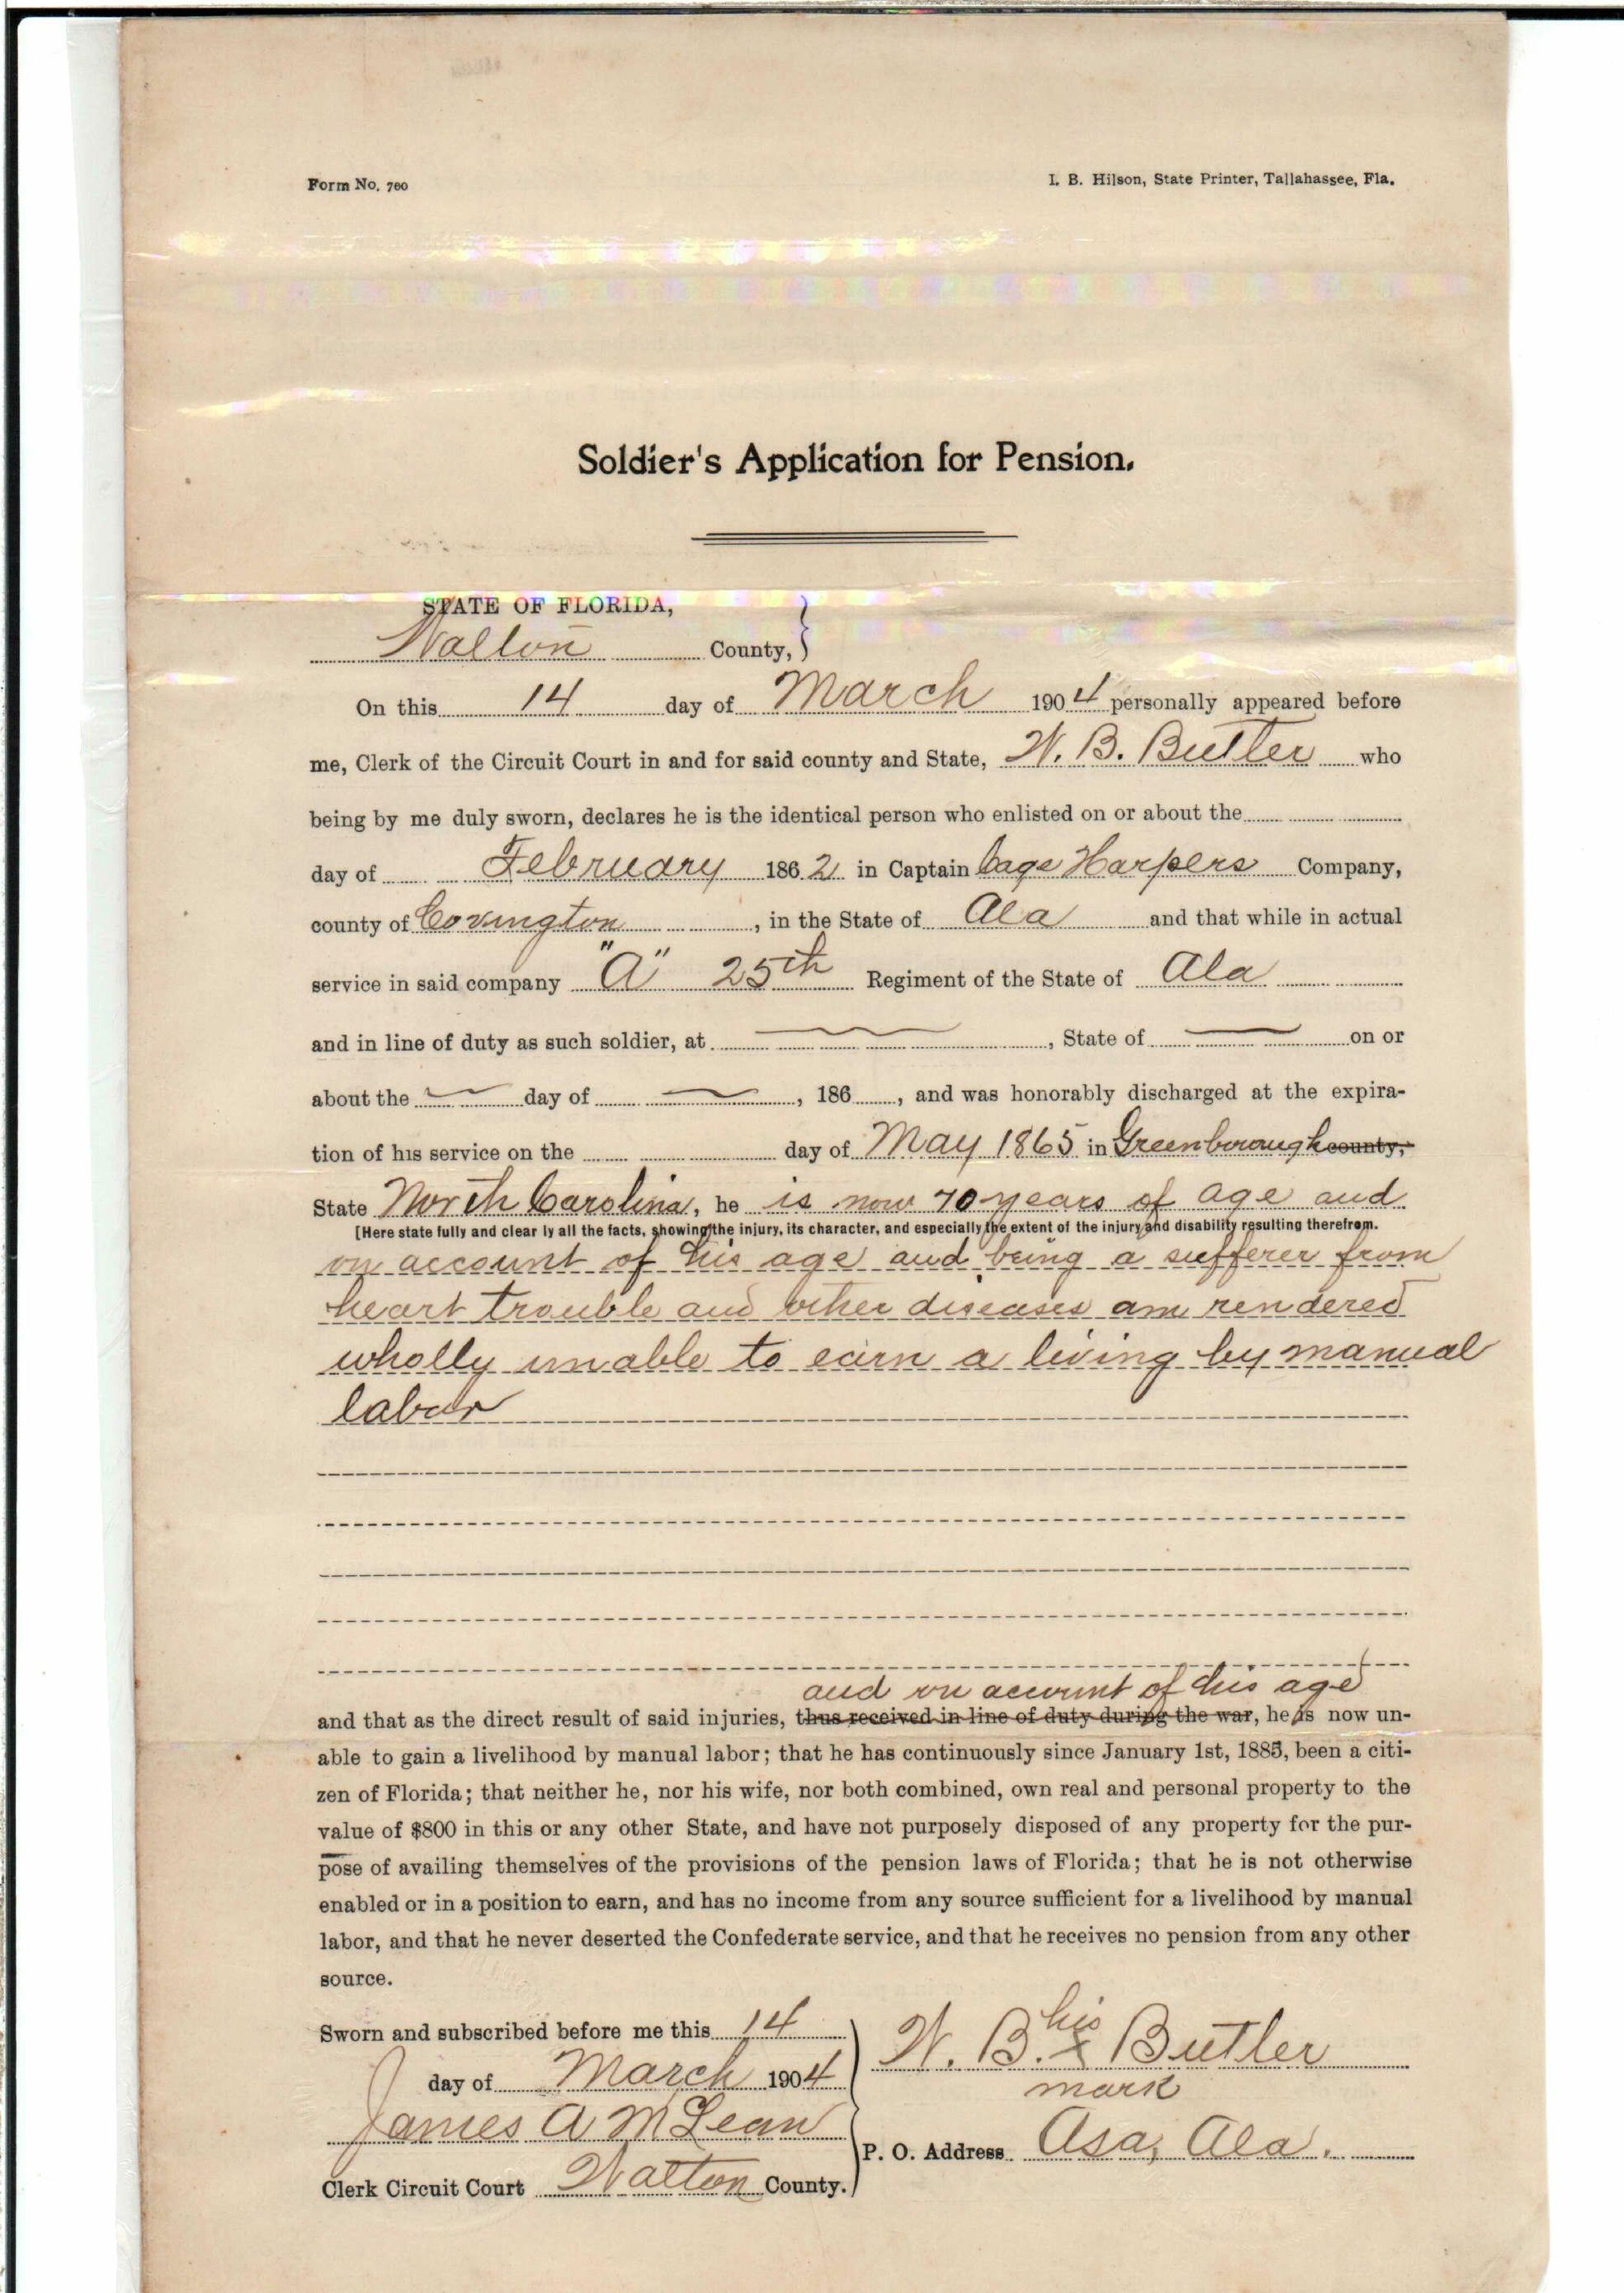 Form No. 760
I. B. Hilson, State Printer, Tallahassee, Fla.
Soldier's Application for Pension.
STATE OF FLORIDA,
Walton County,
On this 14 day of March 1904 personally appeared before
me, Clerk of the Circuit Court in and for said county and State, W. B. Butler who
being by me duly sworn, declares he is the identical person who enlisted on or about the
day of February 1862 in Captain Cage Harpers Company,
county of Covington, in the State of Ala and that while in actual
service in said company "A" 25th Regiment of the State of Ala
and in line of duty as such soldier, at , State of on or
about the day of , 186 , and was honorably discharged at the expira-
tion of his service on the day of May 1865 in Greenborough county,
State North Carolina, he is now 70 years of age and
[Here state fully and clear ly all the facts, showing the injury, its character, and especially the extent of the injury and disability resulting therefrom.
on account of his age and being a sufferer from
heart trouble and other diseases am rendered
wholly unable to earn a living by manual
labor
and on account of his age
and that as the direct result of said injuries, thus received in line of duty during the war, he is now un-
able to gain a livelihood by manual labor; that he has continuously since January 1st, 1885, been a citi-
zen of Florida; that neither he, nor his wife, nor both combined, own real and personal property to the
value of $800 in this or any other State, and have not purposely disposed of any property for the pur-
pose of availing themselves of the provisions of the pension laws of Florida; that he is not otherwise
enabled or in a position to earn, and has no income from any source sufficient for a livelihood by manual
labor, and that he never deserted the Confederate service, and that he receives no pension from any other
source.
Sworn and subscribed before me this 14
day of March 1904
James A McLean
Clerk Circuit Court Walton County.
his
W. B. x Butler
mark
P. O. Address Asa, Ala.